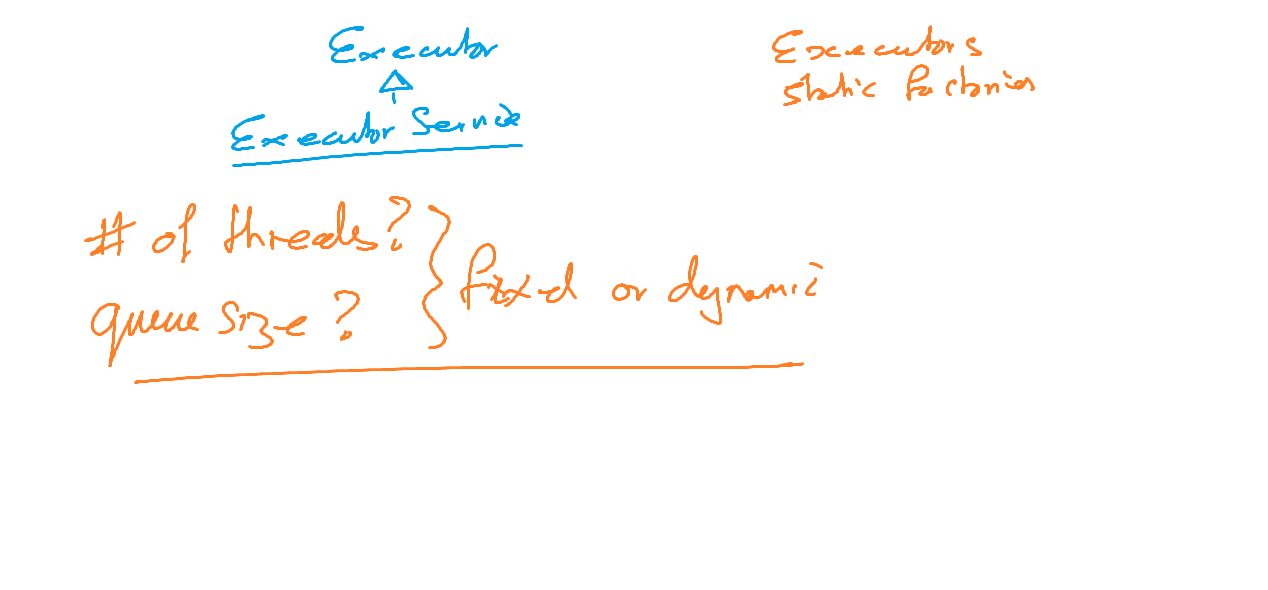 Executor
Executor Service
Executors
static factories
# of threads?
queue size?
fixed or dynamic